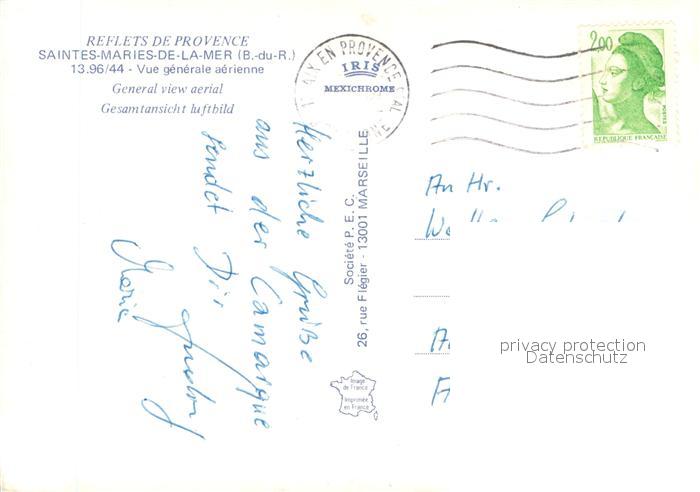 REFLETS DE PROVENCE
SAINTES-MARIES-DE-LA-MER (B.-du-R.)
13.96/44 - Vue générale aérienne
General view aerial
Gesamtansicht luftbild
AIX EN PROVENCE GAL
IRIS
MEXICHROME
2,00
POSTES
REPUBLIQUE FRANÇAISE
Herzliche Grüße
aus der Camargue
sendet Dir
Maria
Société P.E.C.
26, rue Flégier - 13001 MARSEILLE
Image
de France
Imprimée
en France
An Hr.
privacy protection
Datenschutz